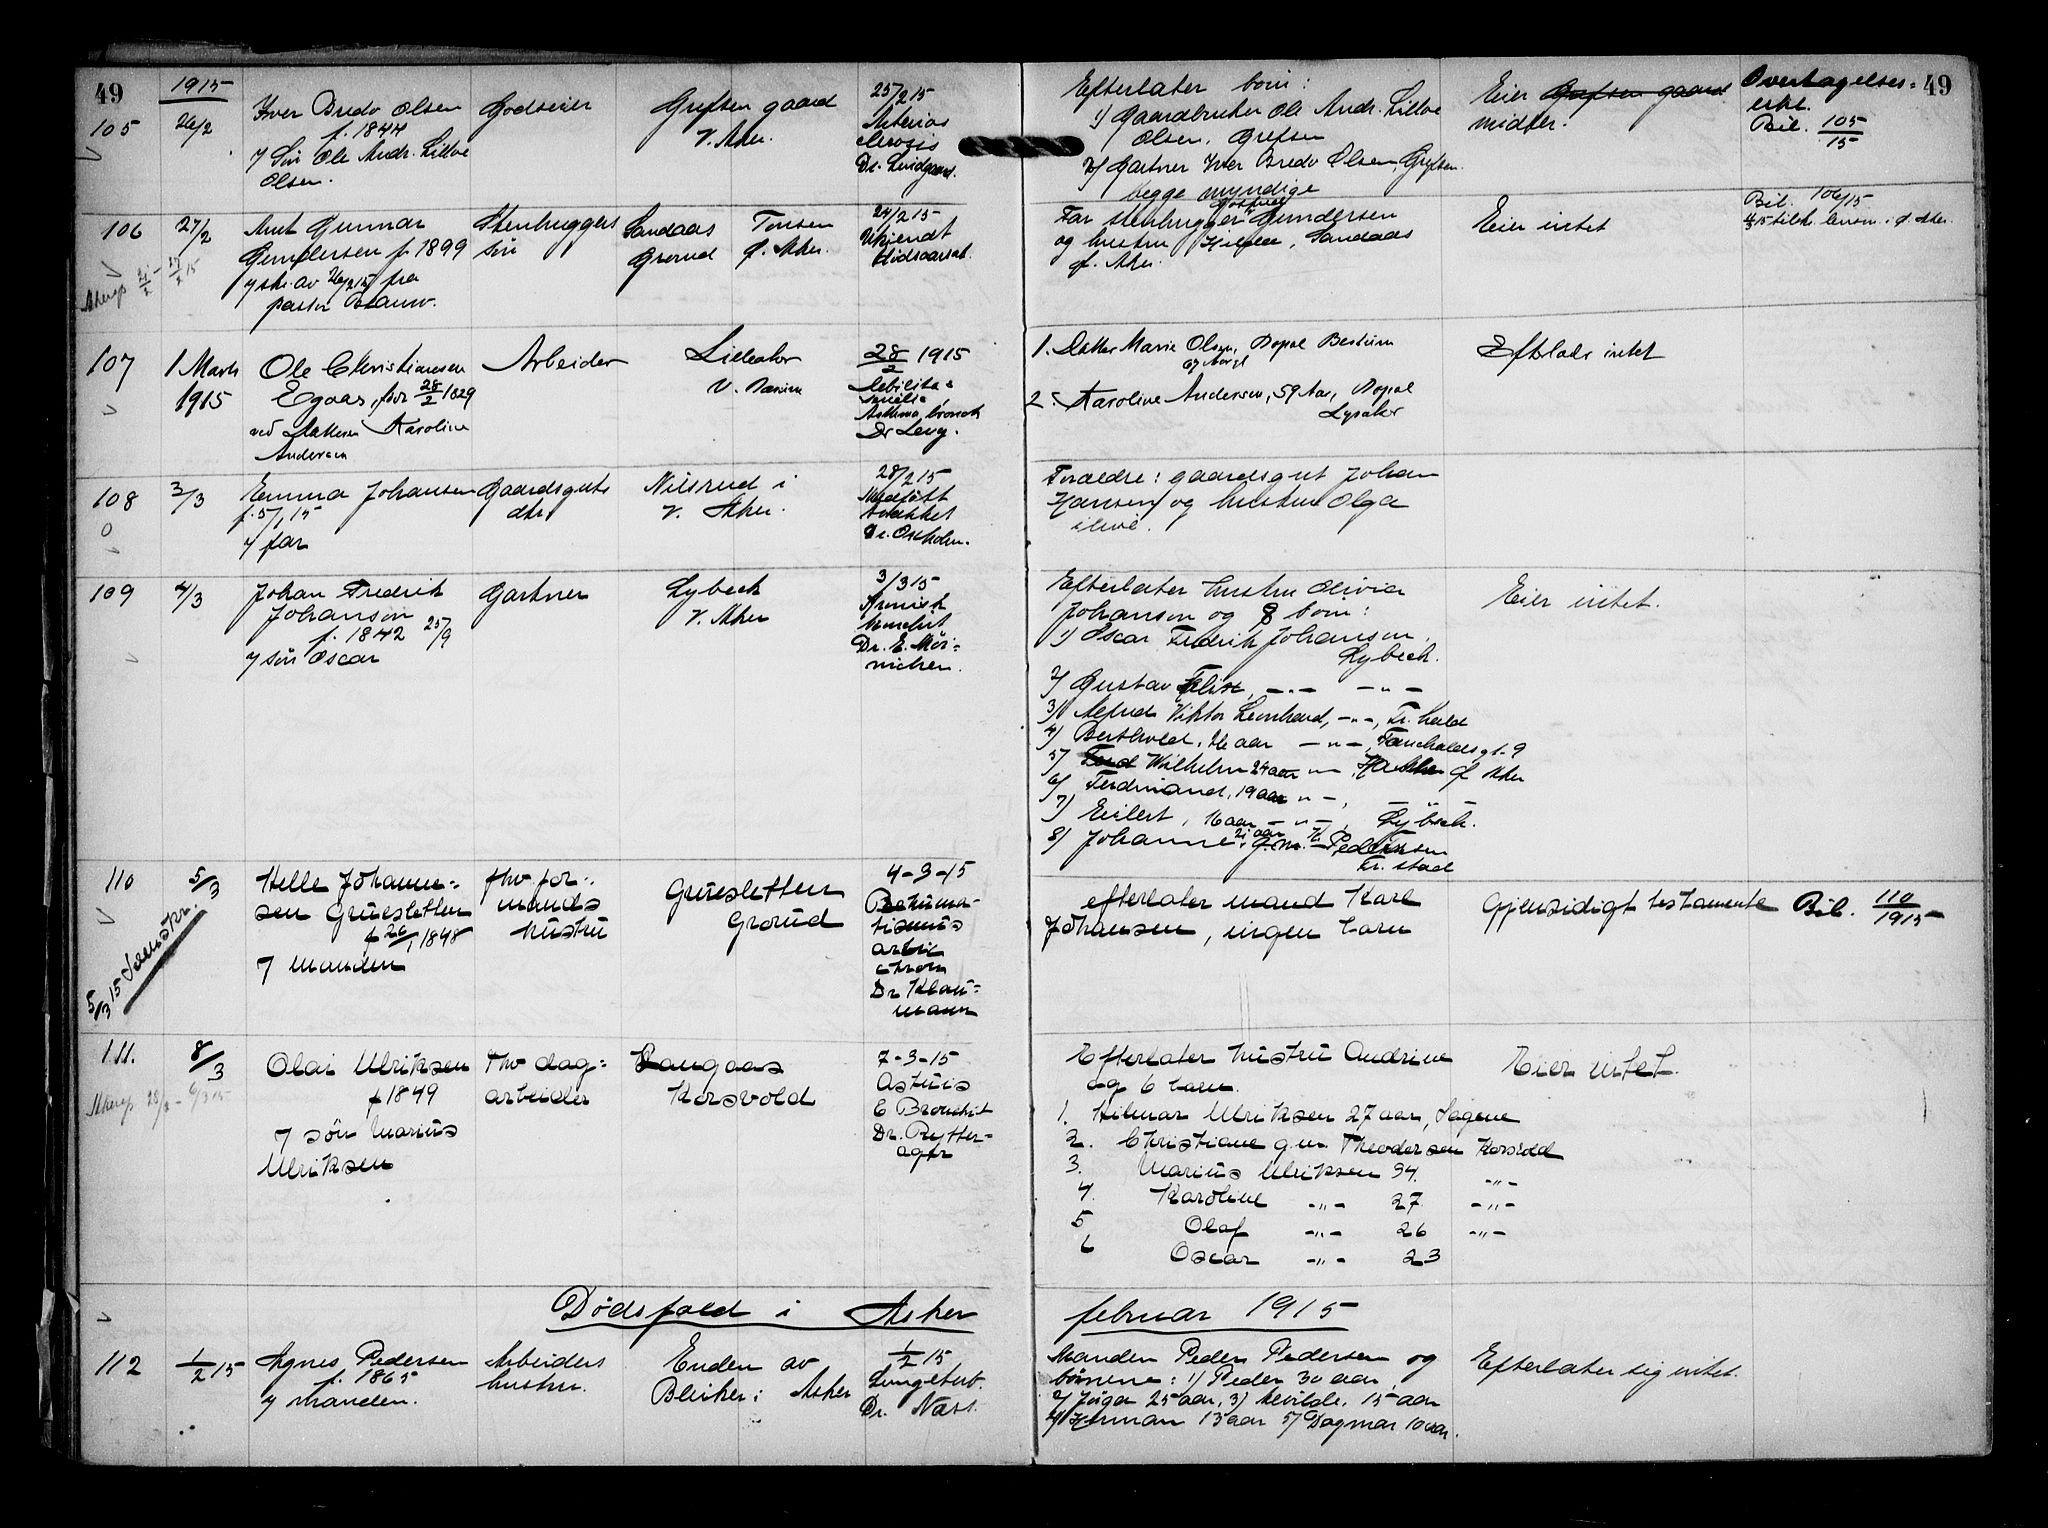 49
1915
105
26/2
Iver Bredo Olsen
f. 1844
Søn Ole Andr. Lilloe
Olsen.
Godseier
Grefsen gaard
V. Aker.
25/2 15
Dr. Lindgaard.
Efterlater børn:
1) Gaardbruker Ole Andr. Lilloe
Olsen, Grefsen
2) Gartner Iver Bredo Olsen, Grefsen.
begge myndige
Eier Grefsen gaard
midler.
Overtagelses-
erkl.
Bil. 105/15
49
106
27/2
Arnt Gunnar
Gundersen f. 1899
av 26/2 15 fra
pastor
Stenhuggers
søn
Sandaas Tonsen
Grorud Ø. Aker.
24/2 15
Ukjendt
dødsaarsak.
Far stenhugger Gundersen
og hustru Sandaas
Ø. Aker.
Eier intet
Bil. 106/15
107
1 Marts
1915
Ole Christiansen
Egaas, født 28/2 1829
ved datteren Karoline
Andersen
Arbeider
Lilleaker
V. Bærum
28/2 1915
Debilitas
senilis
Asthma, bronch
Dr Levy.
1. Datter Marie Olsen, Bopæl Bestum
2. Karoline Andersen, 59 Aar, Bopæl
Lysaker
Efterlader intet
108
2/3
Emma Johansen
f. 5/1 15
far
Gaardsguts
dtr.
Nilsrud i
V. Aker.
28/2 15
Medfødt
svakhet
Forældre: gaardsgut Johan
Hansen og hustru Olga
ilive.
109
4/3
Johan Fredrik
Johanson
f. 1842 25/9
søn Oscar
Gartner
Lybeck
V. Aker
3/3 15
Kronisk
bronchit
Dr. E. Mør-
nichen.
Efterlater hustru Olivia
Johanson og 8 børn:
1) Oscar Fredrik Johanson,
Lybeck.
2) Gustav Felix, -"- -"-
3) Alfred Viktor Leonhard, -"-, Fr.hald
4) Berthold, 26 aar -"-
5) Wilhelm 24 aar -"- Ø Aker
6) Ferdinand, 19 aar -"-,
7) Eilert, 16 aar -"-, Lybeck.
8) Johanne, 21 aar g.m. Pedersen
Fr. stad
Eier intet.
110
5/3
5/3 15
Helle Johanne-
sen Gruesletten
f 26/1 1848
manden
fhv. for-
mands
hustru
Gruesletten
Grorud
4-3-15
Dr Klau-
mann
efterlater mand Karl
Johansen, ingen barn
Gjensidigt testamente
Bil. 110/1915
111.
8/3
Olai Ulriksen
f 1849
søn Marius
Ulriksen
Fhv dag-
arbeider
Langaas
Korsvold
7-3-15
E Bronchit
Dr. Rytter-
ager
Efterlater hustru Andrine
og 6 barn.
1. Hilmar Ulriksen 27 aar, Sagene
2. Christiane g.m. Theodorsen Korsvold
3. Marius Ulriksen 34. -"-
4. Karoline -"- 27 -"-
5 Olaf -"- 26 -"-
6 Oscar -"- 23
Eier intet.
Dødsfald i Asker
februar 1915
112
1/2 15
Agnes Pedersen
f. 1865
manden.
Arbeiders
hustru.
Enden av
Bleiker i Asker
1/2 15
Lungetub.
Dr. Næss.
Manden Peder Pedersen og
børnene: 1) Peder 30 aar,
2) 25 aar, 3) 15 aar
4) Herman 13 aar 5) Dagmar 10 aar.
Efterlater sig intet.